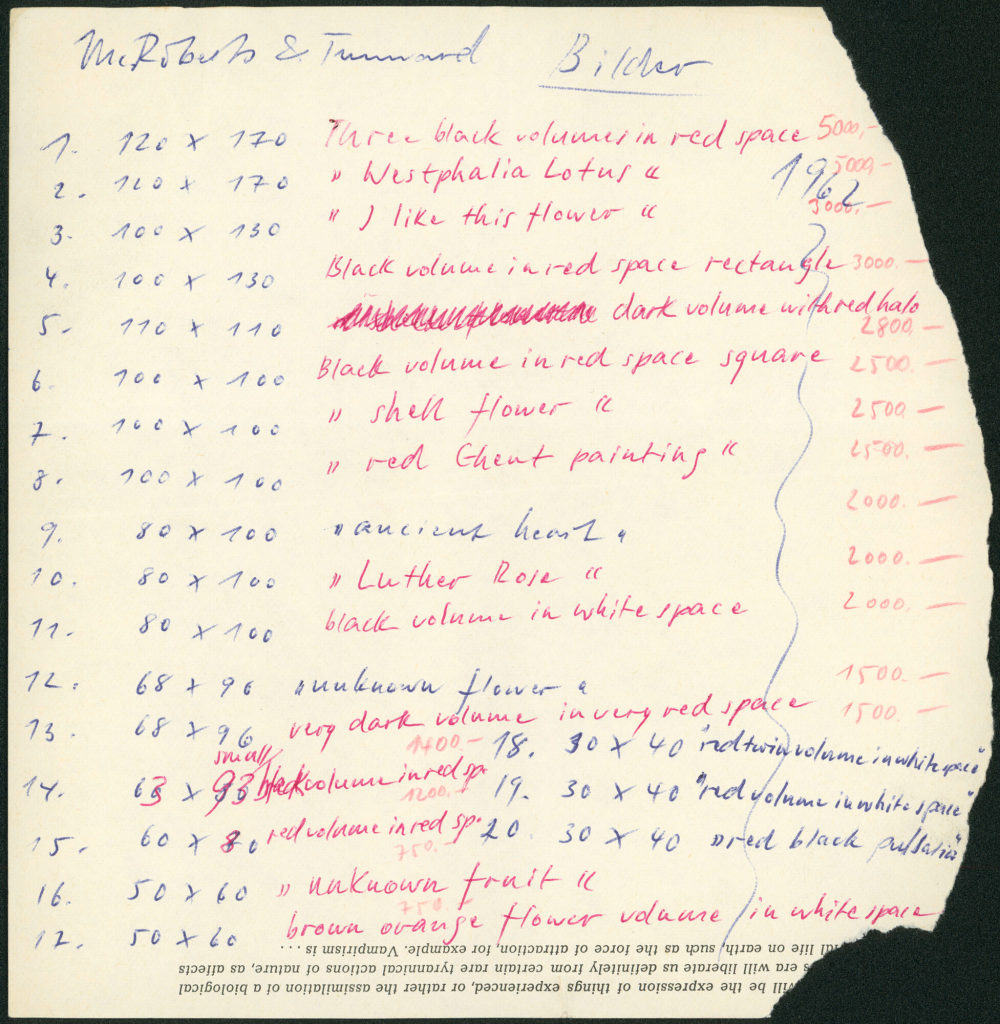 McRoberts & Tunnard Bilder
1. 120 x 170 Three black volumes in red space 5000,-
1962
2. 120 x 170 " Westphalia Lotus " 5000,-
3. 100 x 130 " I like this flower " 3000.—
4. 100 x 130 Black volume in red space rectangle 3000.—
5. 110 x 110 dark volume with red halo
2800.—
6. 100 x 100 Black volume in red space square 2500.—
7. 100 x 100 " shell flower " 2500.—
8. 100 x 100 " red Ghent painting " 2500.—
2000.—
9. 80 x 100 "ancient heart"
10. 80 x 100 " Luther Rose " 2000.—
11. 80 x 100 black volume in white space 2000.—
12. 68 x 96 "unknown flower" 1500.—
13. 68 x 96 very dark volume in very red space 1500.—
1400.—
14. 63 x 93 small black volume in red sp.
1200.—
15. 60 x 80 red volume in red sp.
750.—
16. 50 x 60 " unknown fruit "
750.—
17. 50 x 60 brown orange flower volume in white space
18. 30 x 40 "red twin volume in white space"
19. 30 x 40 "red volume in white space"
20. 30 x 40 "red black
will be the expression of things experienced, or rather the assimilation of a biological
era will liberate us definitely from certain rare tyrannical actions of nature, as affects
life on earth, such as the force of attraction, for example. Vampirism is ...